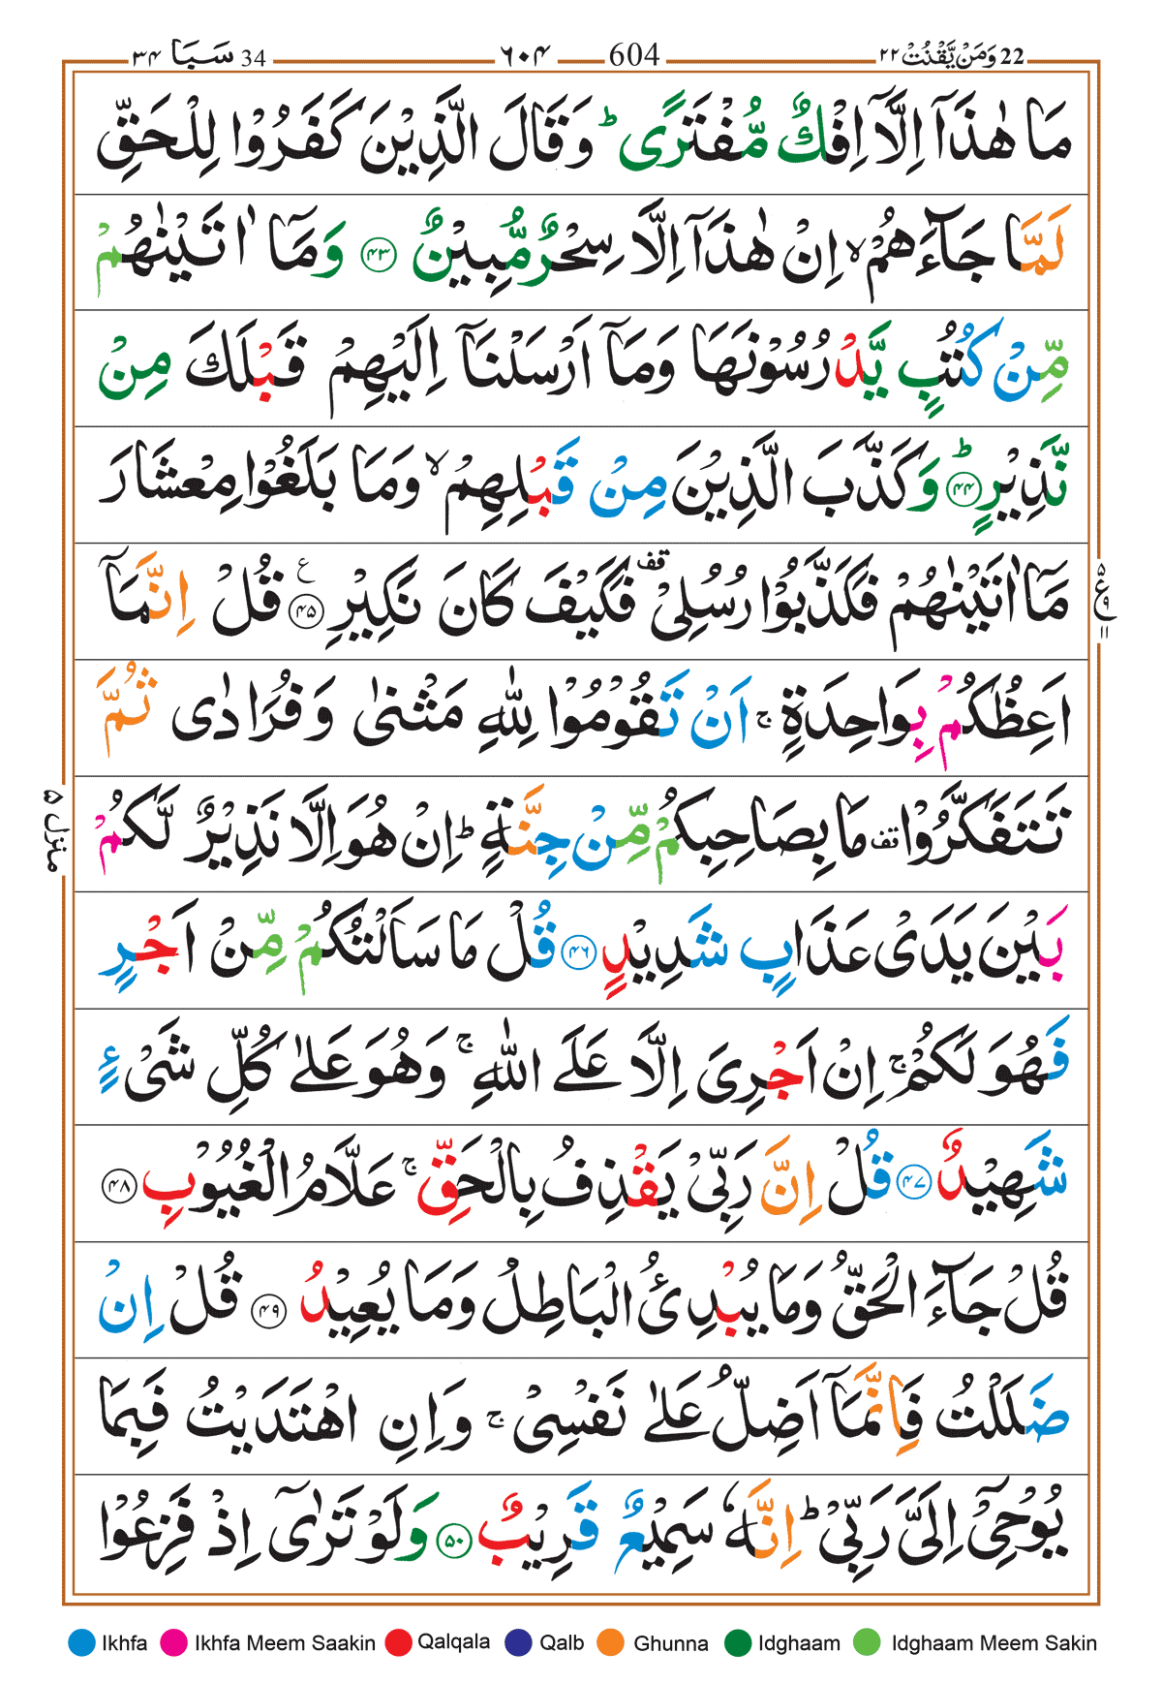 22 وَمَنْ يَّقْنُتْ ٢٢ 604 ٦٠٤ 34 سَبَا ٣٤
مَا هٰذَاۤ اِلَّاۤ اِفْكٌ مُّفْتَرًى ؕ وَقَالَ الَّذِيْنَ كَفَرُوْا لِلْحَقِّ
لَمَّا جَآءَهُمْ ۙ اِنْ هٰذَاۤ اِلَّا سِحْرٌ مُّبِيْنٌ ﴿۴۳﴾ وَمَاۤ اٰتَيْنٰهُمْ
مِّنْ كُتُبٍ يَّدْرُسُوْنَهَا وَمَاۤ اَرْسَلْنَاۤ اِلَيْهِمْ قَبْلَكَ مِنْ
نَّذِيْرٍ ؕ ﴿۴۴﴾ وَكَذَّبَ الَّذِيْنَ مِنْ قَبْلِهِمْ ۙ وَمَا بَلَغُوْا مِعْشَارَ
مَاۤ اٰتَيْنٰهُمْ فَكَذَّبُوْا رُسُلِيْ قف فَكَيْفَ كَانَ نَكِيْرِ ﴿۴۵﴾ ع قُلْ اِنَّمَاۤ
اَعِظُكُمْ بِوَاحِدَةٍ ۚ اَنْ تَقُوْمُوْا لِلّٰهِ مَثْنٰى وَفُرَادٰى ثُمَّ
تَتَفَكَّرُوْا قف مَا بِصَاحِبِكُمْ مِّنْ جِنَّةٍ ؕ اِنْ هُوَ اِلَّا نَذِيْرٌ لَّكُمْ
بَيْنَ يَدَيْ عَذَابٍ شَدِيْدٍ ﴿۴۶﴾ قُلْ مَا سَاَلْتُكُمْ مِّنْ اَجْرٍ
فَهُوَ لَكُمْ ۚ اِنْ اَجْرِيَ اِلَّا عَلَى اللّٰهِ ۚ وَهُوَ عَلٰى كُلِّ شَيْءٍ
شَهِيْدٌ ﴿۴۷﴾ قُلْ اِنَّ رَبِّيْ يَقْذِفُ بِالْحَقِّ ۚ عَلَّامُ الْغُيُوْبِ ﴿۴۸﴾
قُلْ جَآءَ الْحَقُّ وَمَا يُبْدِئُ الْبَاطِلُ وَمَا يُعِيْدُ ﴿۴۹﴾ قُلْ اِنْ
ضَلَلْتُ فَاِنَّمَاۤ اَضِلُّ عَلٰى نَفْسِيْ ۚ وَاِنِ اهْتَدَيْتُ فَبِمَا
يُوْحِيْۤ اِلَيَّ رَبِّيْ ؕ اِنَّهٗ سَمِيْعٌ قَرِيْبٌ ﴿۵۰﴾ وَلَوْ تَرٰۤى اِذْ فَزِعُوْا
ع ۵ ۹ ۱۱
منزل ۵
Ikhfa Ikhfa Meem Saakin Qalqala Qalb Ghunna Idghaam Idghaam Meem Sakin